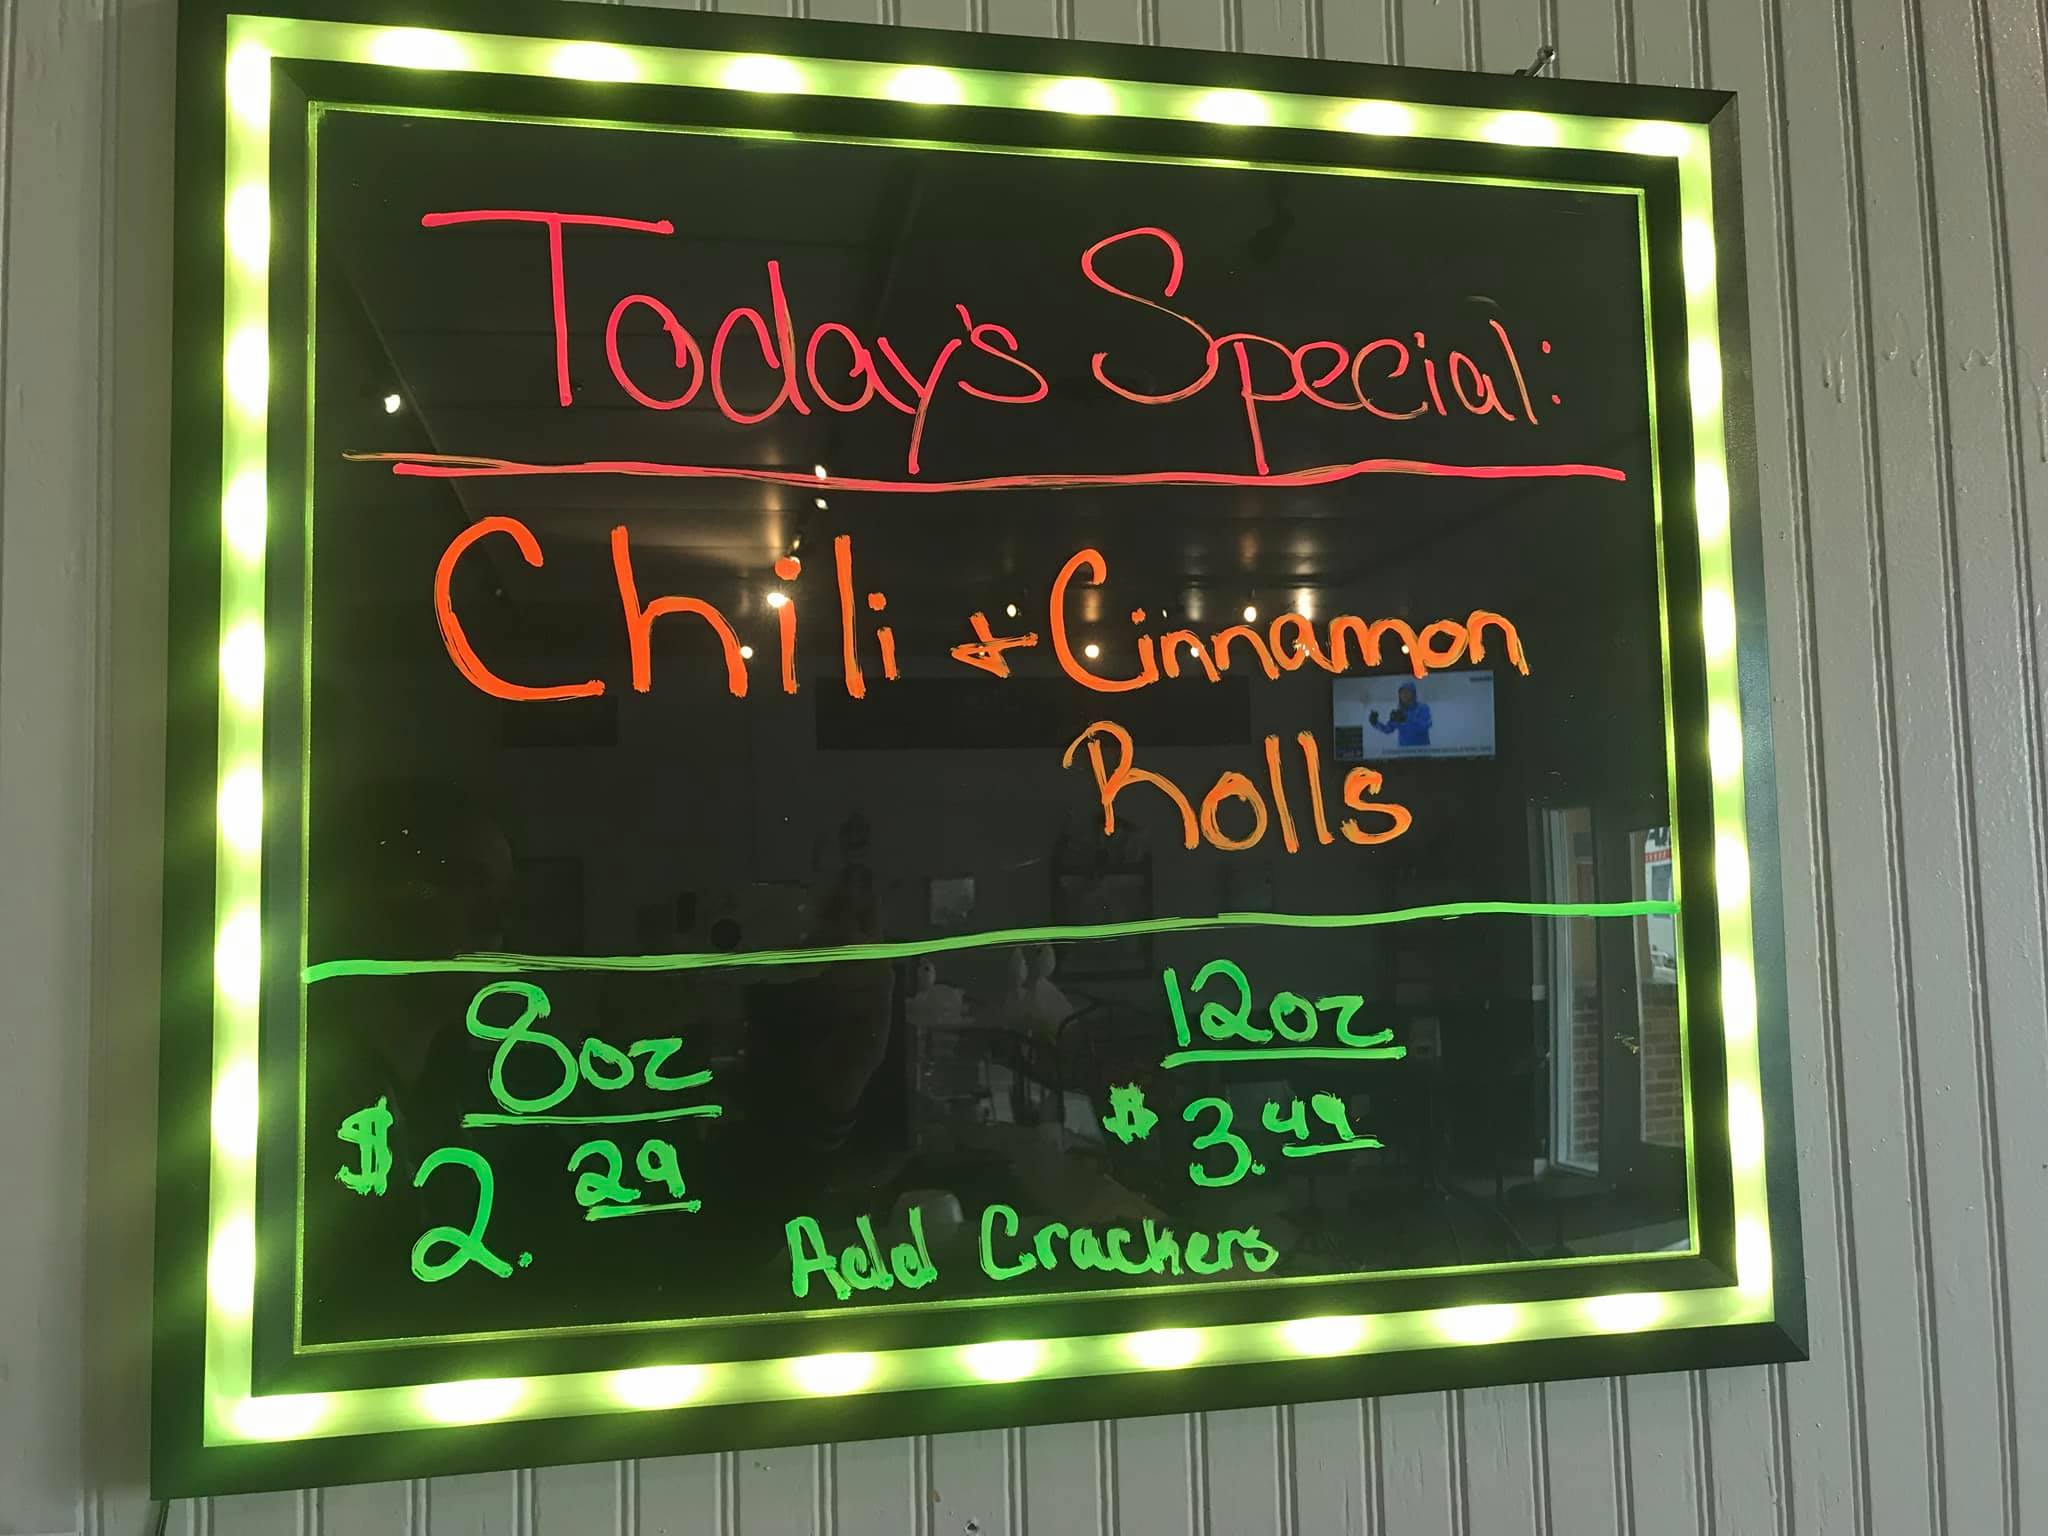 Today's Special:
Chili + Cinnamon
Rolls
8oz
$2.29
12oz
$3.49
Add Crackers